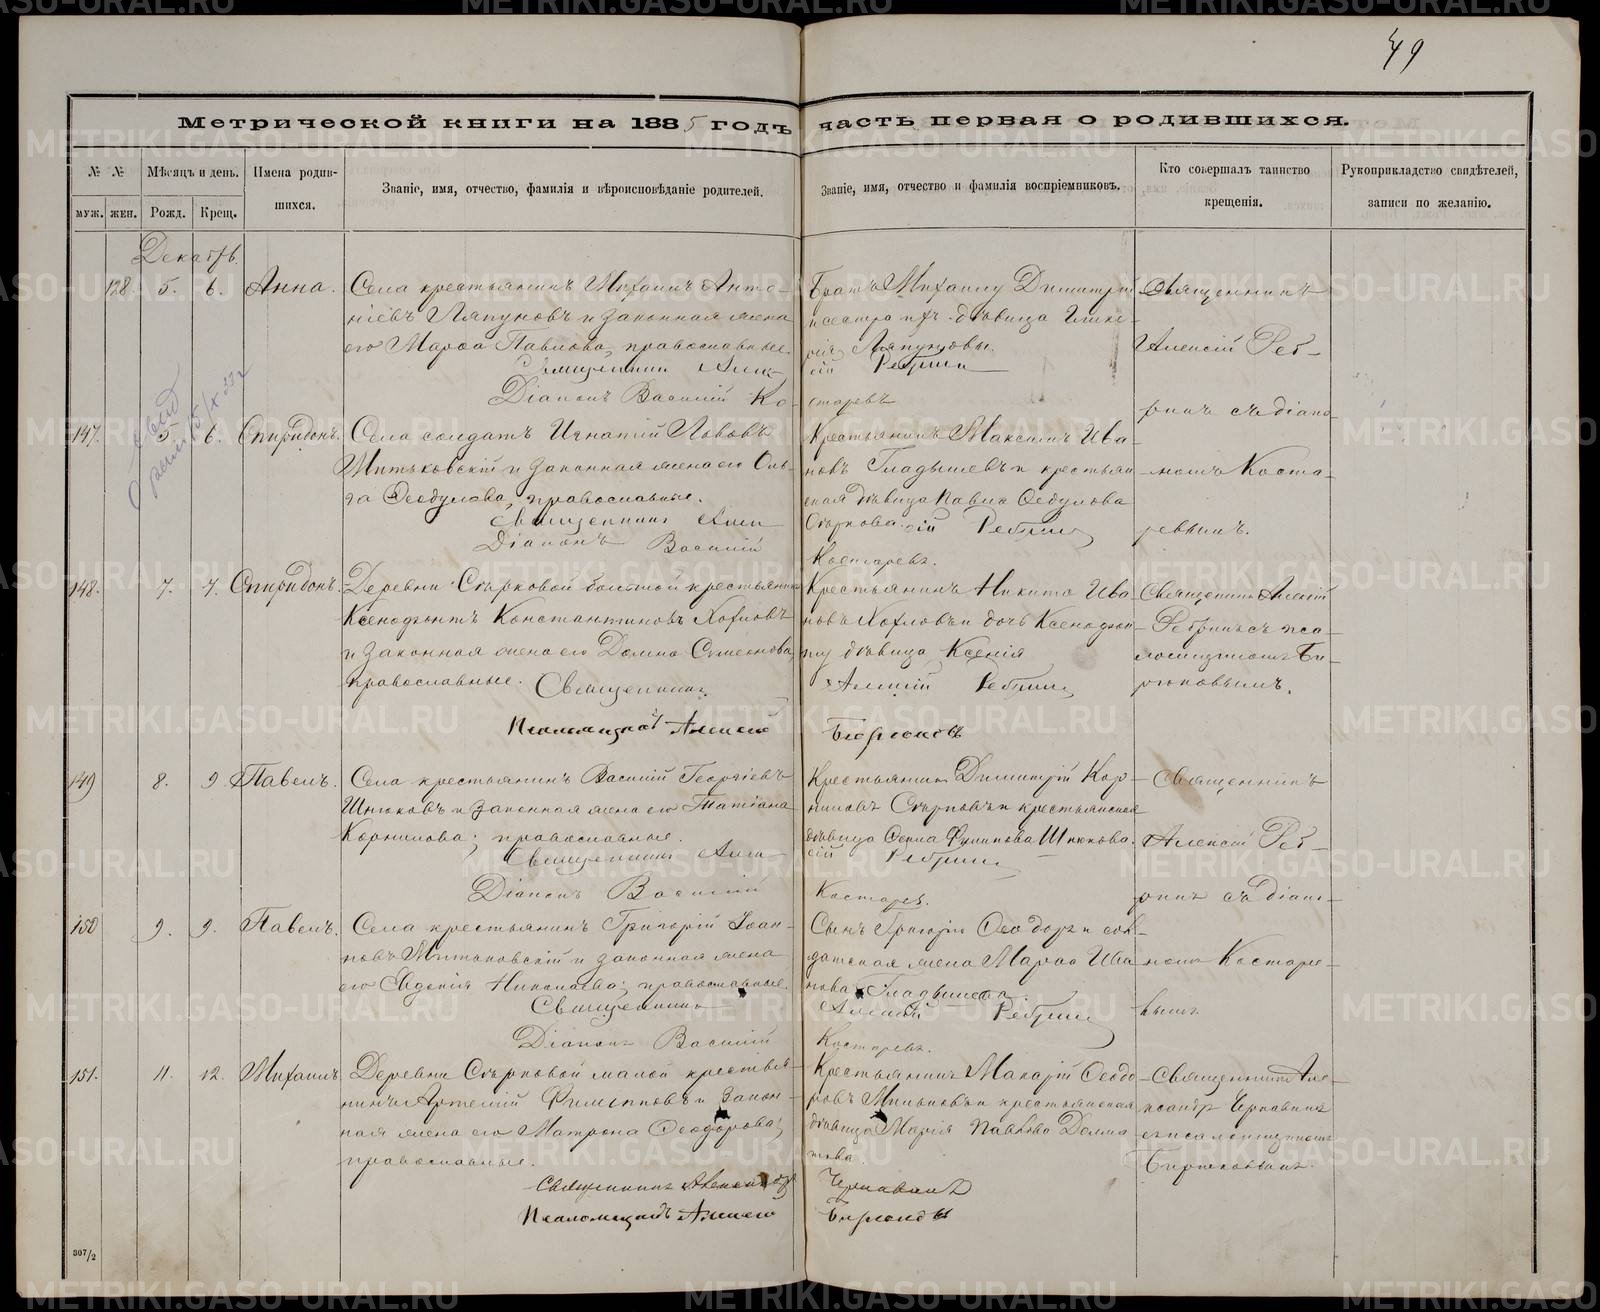 49
Метрической книги на 1885 годъ часть первая о родившихся.
№ №
Мѣсяцъ и день.
Имена родив-
шихся.
Званіе, имя, отчество, фамилія и вѣроисповѣданіе родителей.
Званіе, имя, отчество и фамилія воспріемниковъ.
Кто совершалъ таинство
крещенія.
Рукоприкладство свидѣтелей,
записи по желанію.
муж. жен. Рожд. Крещ.
Декабрь.
128. 5. 6. Анна.
Села крестьянинъ Михаилъ Анто-
ніевъ Ляпуновъ и законная жена
его Марѳа Павлова, православные.
Священникъ Алек-
Діаконъ Василій Ко-
Братъ Михаилу Димитрій
и сестра дѣвица Глике-
рія Ляпуновы.
сій Ребринъ
старевъ
Священникъ
Алексій Реб-
ринъ съ діако-
147. 5. 6. Спиридонъ.
Села солдатъ Игнатій Львовъ
Митьковскій и законная жена его Оль-
га Ѳеодулова, православные.
Священникъ Алек
Діаконъ Василій
Крестьянинъ Максимъ Ива-
новъ Гладышевъ и крестьян
ская дѣвица Ѳедулова
Сѣркова. сій Ребринъ
Костаревъ.
номъ Коста-
ревымъ.
148. 7. 7. Спиридонъ.
Деревни Сѣрковой большой крестьянинъ
Ксенофонтъ Константиновъ Хохловъ
и законная жена его Домна Симеонова,
православные. Священникъ
Псаломщикъ Алексѣй
Крестьянинъ Никита Ива-
новъ Хохловъ и дочь Ксенофон
ту дѣвица Ксенія
Алексій Ребринъ
Бирюковъ
Священникъ Алексій
Ребринъ съ пса-
ломщикомъ Би-
рюковымъ.
149 8. 9. Павелъ.
Села крестьянинъ Василій Георгіевъ
Шнюковъ и законная жена его Татіана
Корнилова; православные.
Священникъ Алек
Діаконъ Василій
Крестьянинъ Димитрій Кор-
ниловъ Сѣрковъ и крестьянская
дѣвица Филипова Шнюкова.
сій Ребринъ
Костаревъ.
Священникъ
Алексій Реб-
ринъ съ діако-
150 9. 9. Павелъ.
Села крестьянинъ Григорій Іоан-
новъ Митьковскій и законная жена
его Евдокія Николаева; православные.
Священникъ
Діаконъ Василій
Сынъ Григорію Ѳеодоръ и сол-
датская жена Марѳа Ива
нова Гладышева.
Алексій Ребринъ
Костаревъ.
номъ Костаре-
вымъ
151. 11. 12. Михаилъ
Деревни Сѣрковой малой крестья-
нинъ Артемій Филипповъ и закон-
ная жена его Матрона Ѳеодорова;
православные.
Священникъ Александръ
Псаломщикъ Алексѣй
Крестьянинъ Макарій Ѳеодо
ровъ и крестьянская
дѣвица Марія Павлова Долма
това.
Чернавинъ
Бирюковъ
Священникъ Але-
ксандръ Чернавинъ
съ псаломщикомъ
Бирюковымъ.
307/2